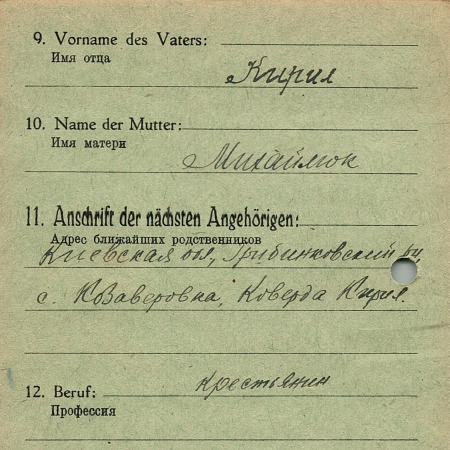 9. Vorname des Vaters:
Имя отца
Кирил
10. Name der Mutter:
Имя матери
Михаймюк
11. Anschrift der nächsten Angehörigen:
Адрес ближайших родственников
Киевская обл,
с. Коверда Кирил.
12. Beruf: крестьянин
Профессия